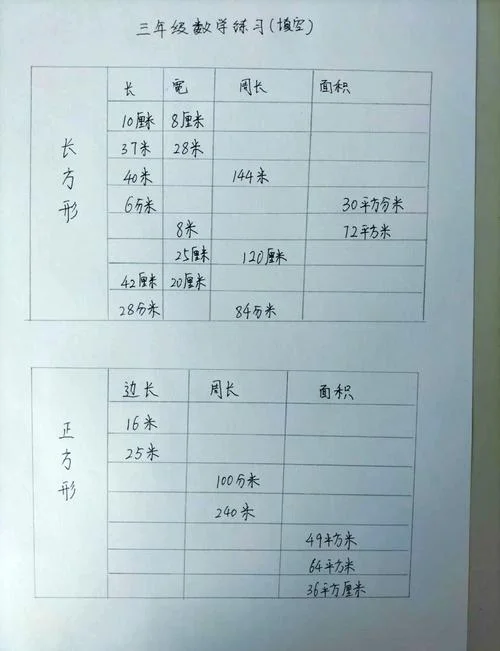 三年级数学练习(填空)
长方形
长 宽 周长 面积
10厘米 8厘米
37米 28米
40米 144米
6分米 30平方分米
8米 72平方米
25厘米 120厘米
42厘米 20厘米
28分米 84分米
正方形
边长 周长 面积
16米
25米
100分米
240米
49平方米
64平方米
36平方厘米